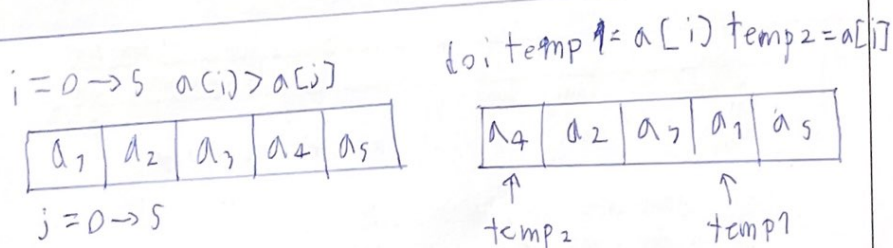 i = 0 → 5 a(i) > a[j]
a1 a2 a3 a4 a5
j = 0 → 5
do i temp 1 = a[i] temp2 = a[j]
a4 a2 a3 a1 a5
temp2 temp1